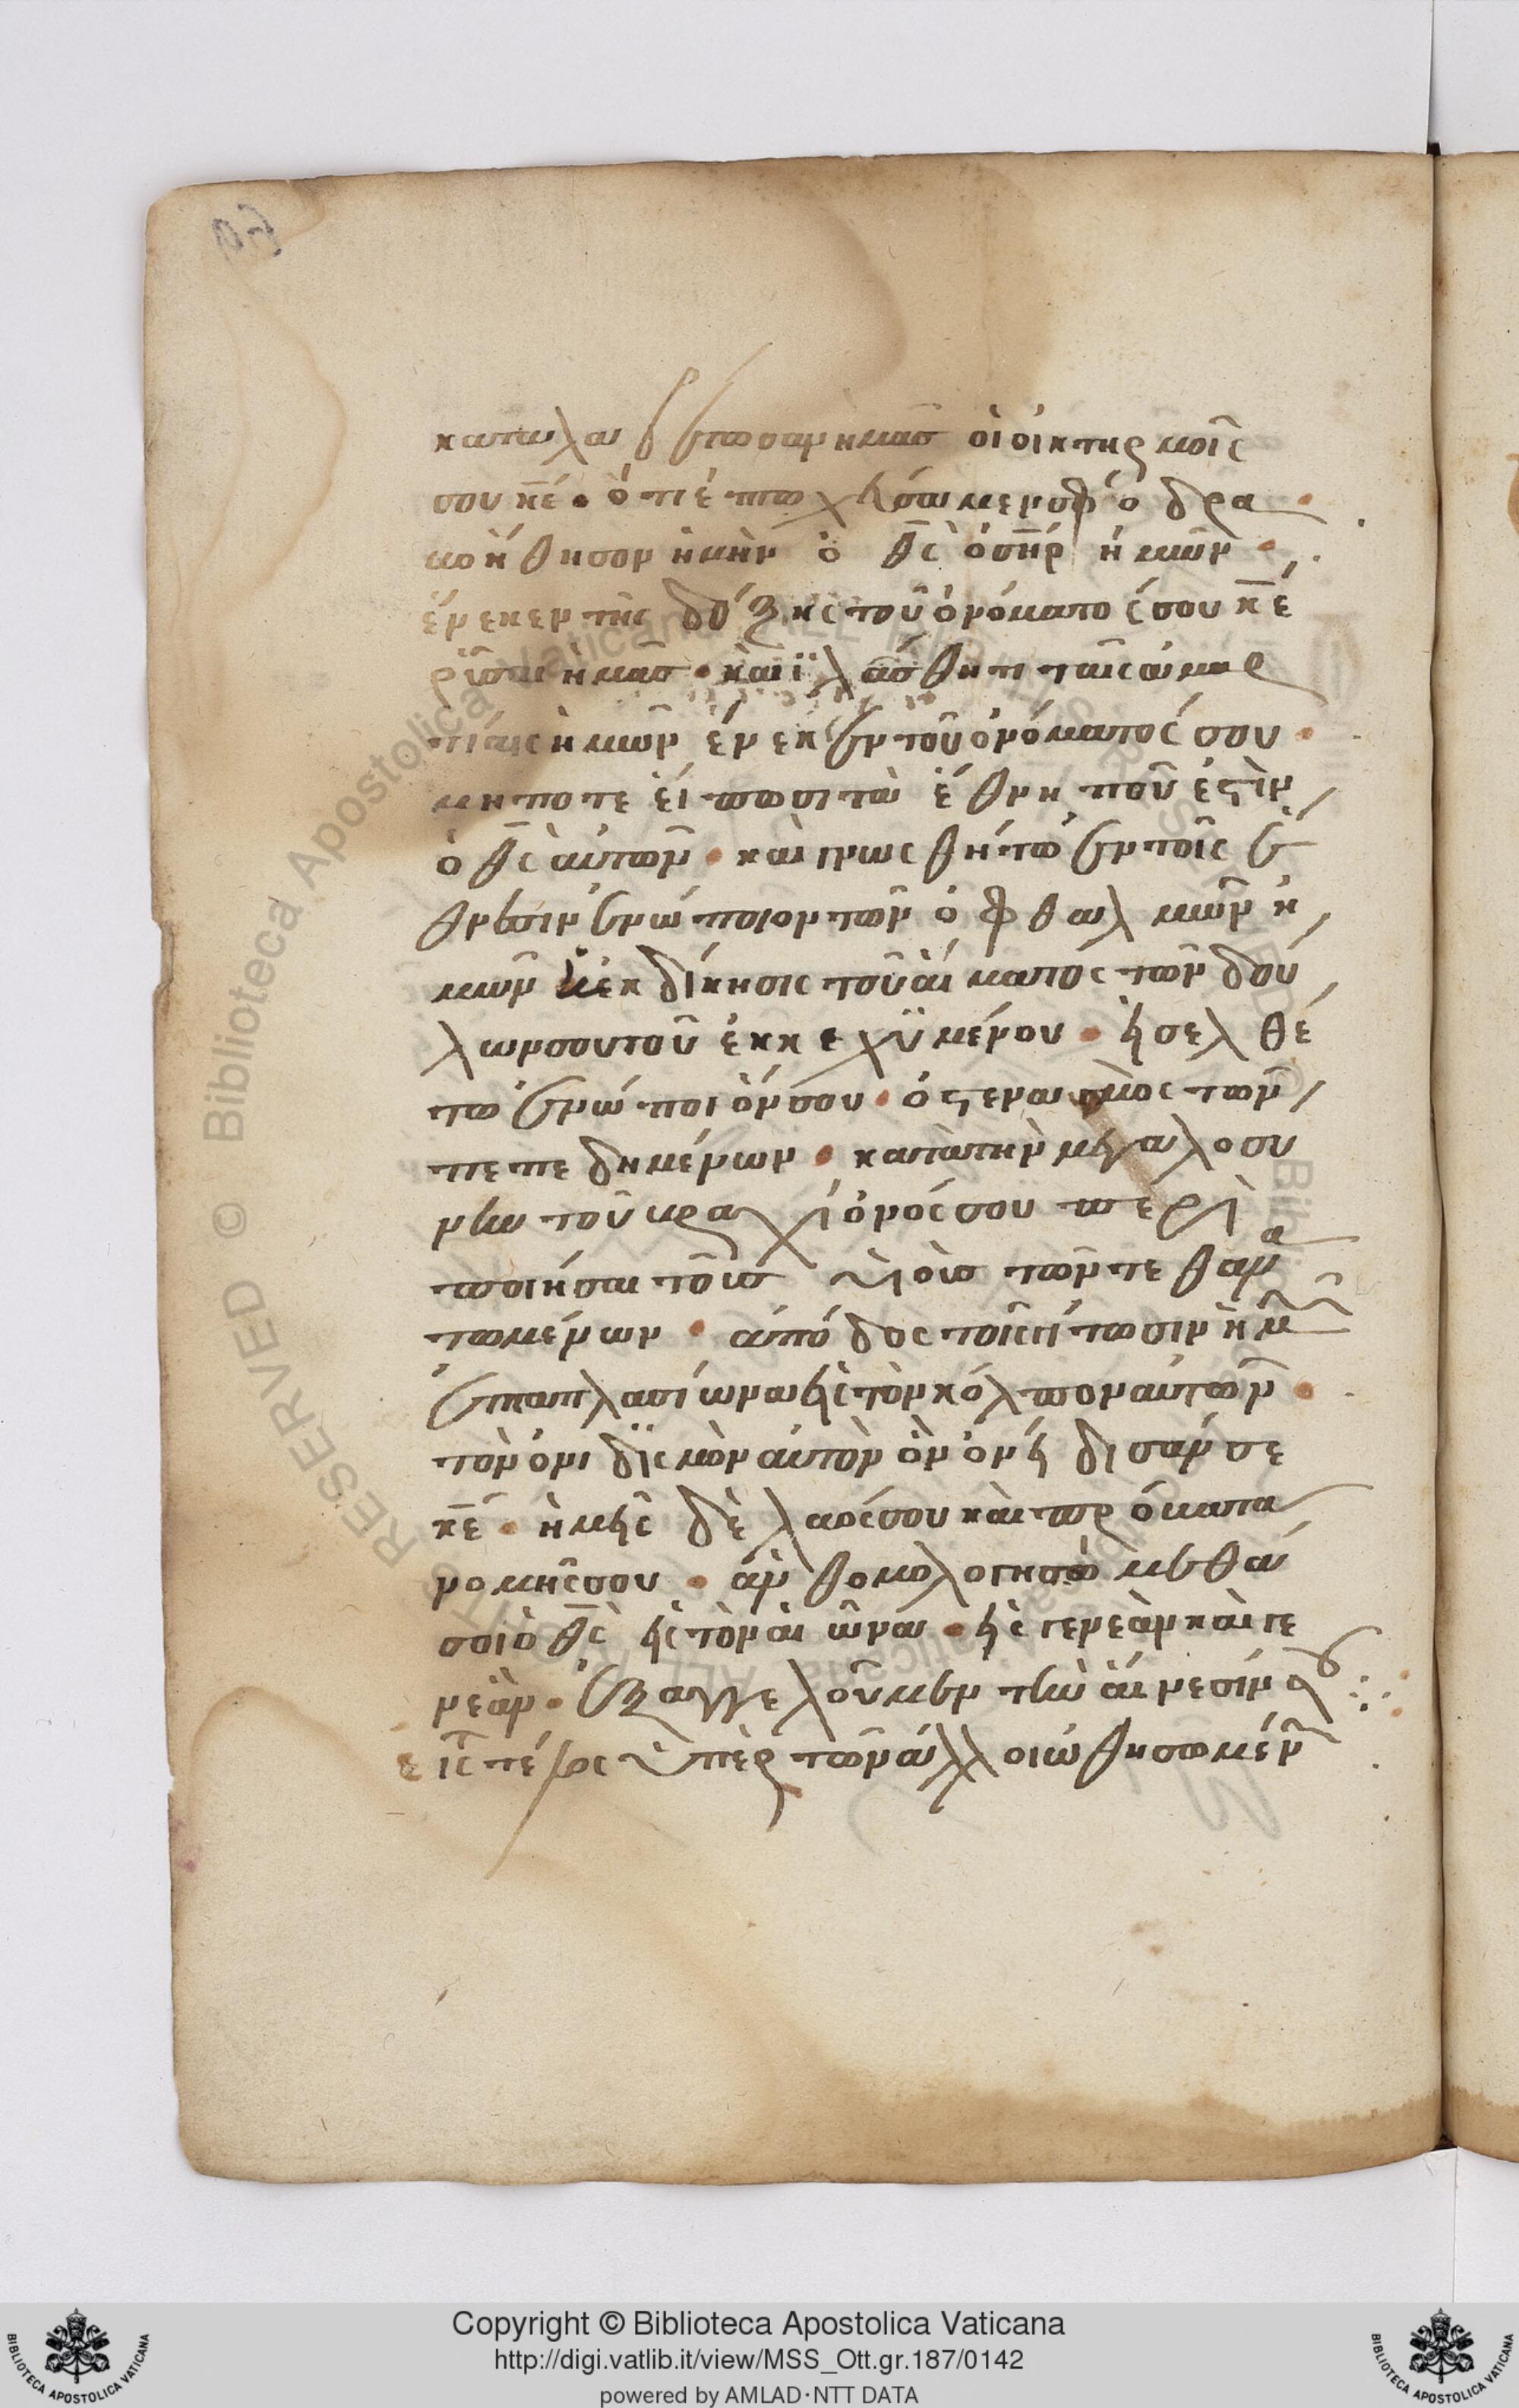 καταλαβέτωσαν ἡμᾶσ οἱ οἰκτηρμοῖς
σου κε̅· ὅτι ἐπτωχεύσαμεν σφόδρα·
βοήθησον ἡμὴν ὁ θς̅ ὁ σηρ̅ ἡμῶν·
ἕνεκεν τῆς δόξης τοῦ ὀνόματος σου κε̅
ρῦσαι ἡμᾶσ· καὶ ϊλάσθητι ταῖς ἁμαρ
τίαις ἡμῶν ἕνεκεν τοῦ ὀνόματός σου·
μήποτε εἴπωσι τὰ ἔθνη ποῦ ἐστὶν
ὁ θς̅ αὐτῶν· καὶ γνωσθήτω ἐν τοῖς ἔ
θνεσιν ἐνώπιον τῶν ὀφθαλμῶν ἡ
μῶν ἡ ἐκδίκησις τοῦ αἵματος τῶν δού
λων σου τοῦ ἐκκεχϋμένου· εἰσελθέ
τω ἐνώπιόν σου· ὁ στεναγμὸς τῶν
πεπεδημένων· κατὰ τὴν μεγαλοσύ
νην τοῦ βραχίονός σου περὶ
ποίησαι τοῦσ υἱοὺσ τῶν τεθανα
τωμένων· ἀπόδος τοῖς γίτωσιν ἡμῶν
ἑπταπλασίωνα εἰς τὸν κόλπον αὐτῶν·
τὸν ὀνιδϊσμὸν αὐτὸν ὃν ὀνείδισάν σε
κε̅· ἡμεῖς δὲ λαός σου καὶ πρόβατα
νομῆς σου· ἀνθομολογησώμεθα
σοι ὁ θς̅ εἰς τὸν αἰῶνα· εἰς γενεὰν καὶ γε
νεὰν· ἐξαγγελοῦμεν τὴν αἴνεσίν σου
εἰς τέλος ὑπὲρ τῶν ἀλλοιωθησωμένων
Copyright © Biblioteca Apostolica Vaticana
http://digi.vatlib.it/view/MSS_Ott.gr.187/0142
powered by AMLAD·NTT DATA